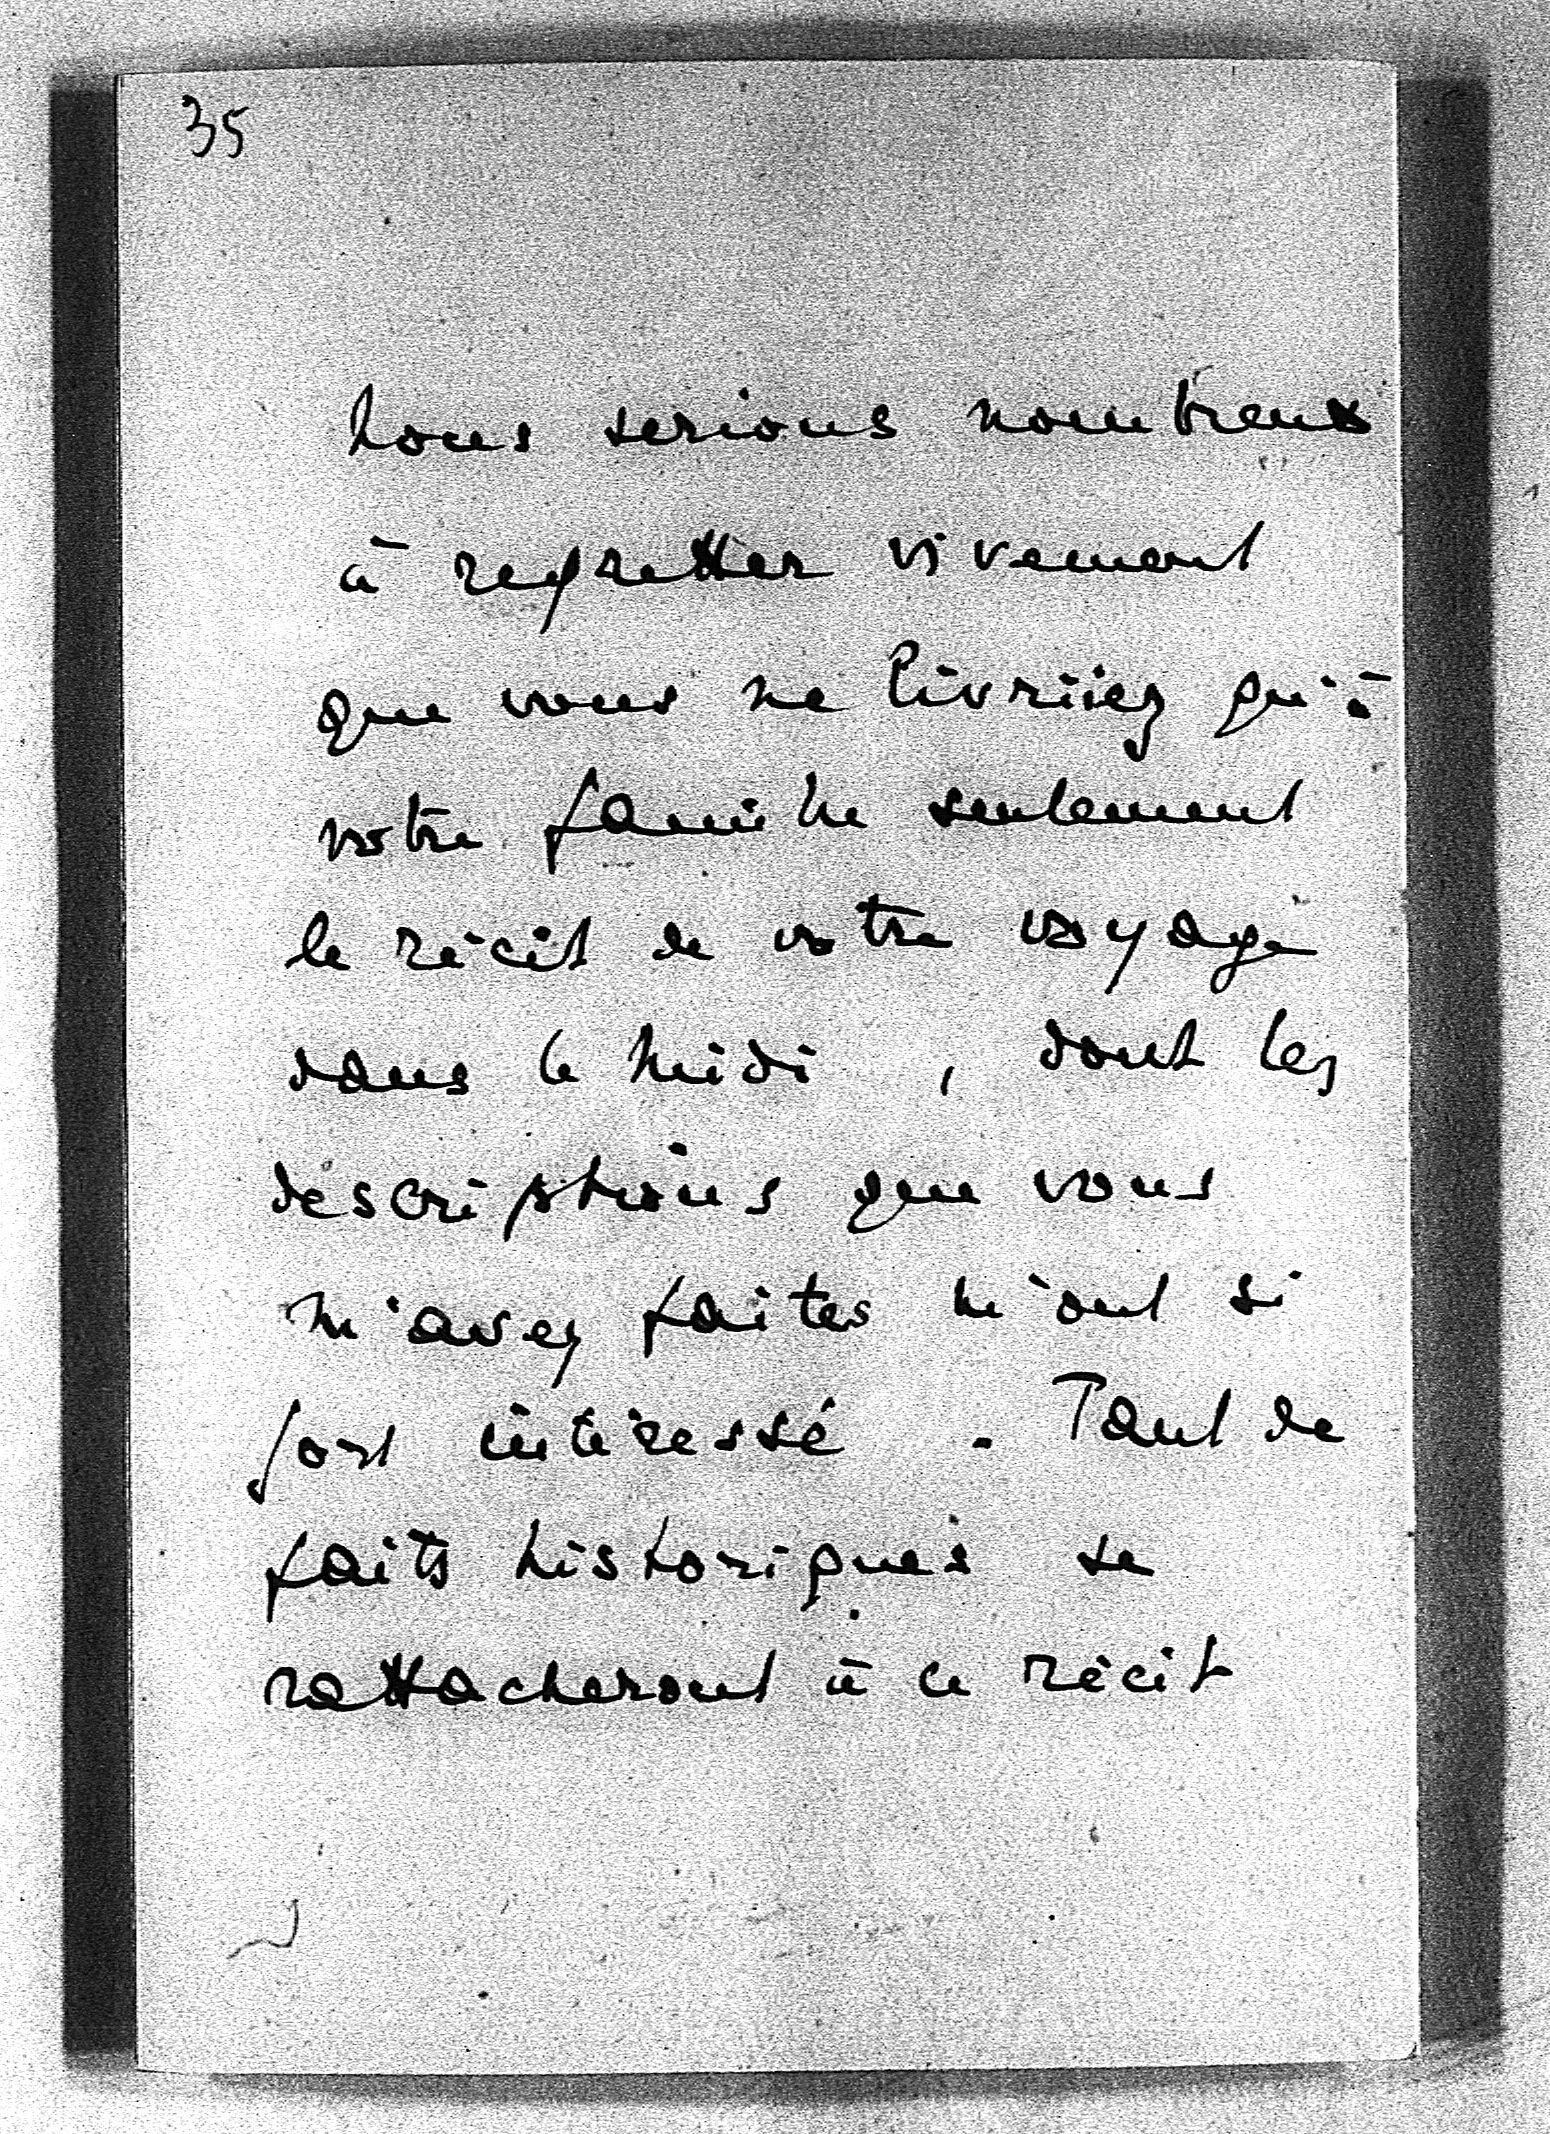 35
Nous serions nombreux
à regretter vivement
que vous ne livriiez qu'à
votre famille seulement
le récit de votre voyage
dans le Midi, dont les
descriptions que vous
m'avez faites m'ont si
fort intéressé. Tant de
faits historiques se
rattacheront à ce récit